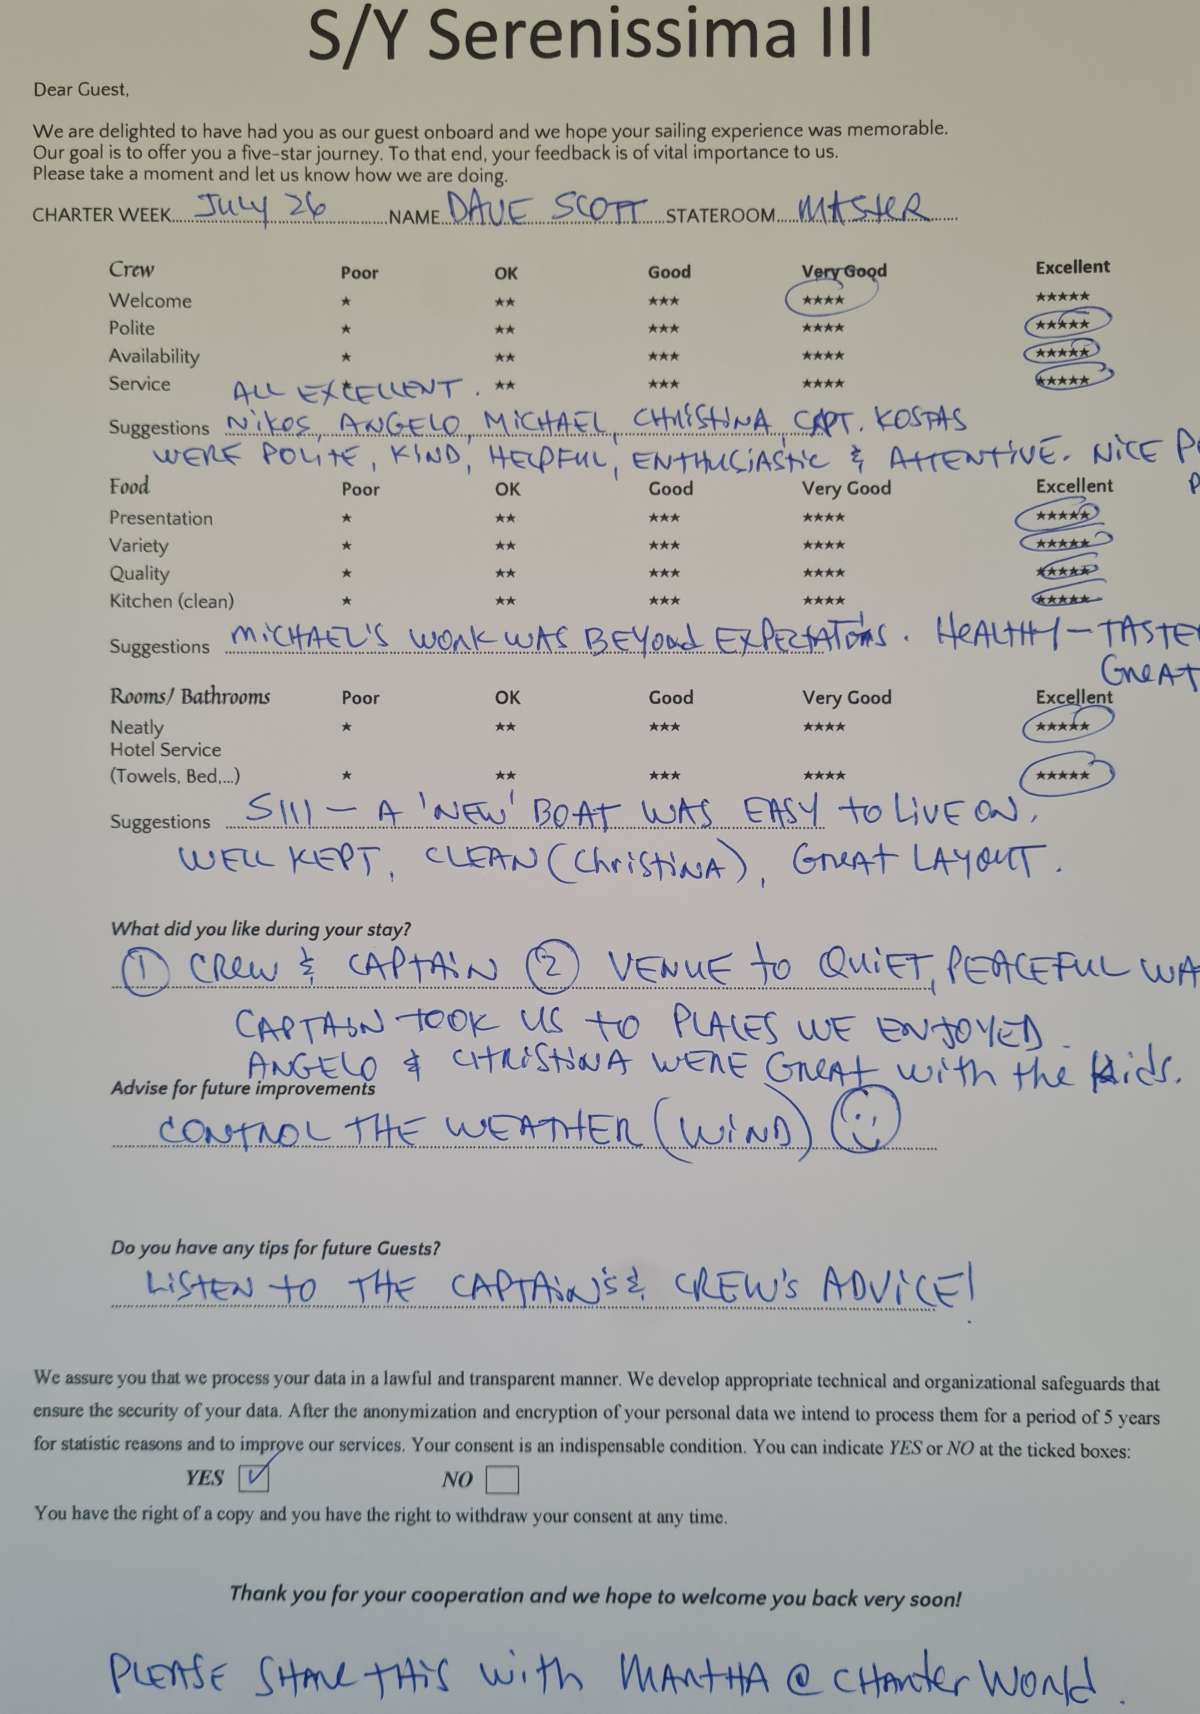 S/Y Serenissima III
Dear Guest,
We are delighted to have had you as our guest onboard and we hope your sailing experience was memorable.
Our goal is to offer you a five-star journey. To that end, your feedback is of vital importance to us.
Please take a moment and let us know how we are doing.
CHARTER WEEK JULY 26 NAME DAVE SCOTT STATEROOM MASTER
Crew Poor OK Good Very Good Excellent
Welcome ★ ★★ ★★★ ★★★★ ★★★★★
Polite ★ ★★ ★★★ ★★★★ ★★★★★
Availability ★ ★★ ★★★ ★★★★ ★★★★★
Service ALL EXCELLENT. ★ ★★ ★★★ ★★★★ ★★★★★
Suggestions NIKOS, ANGELO, MICHAEL, CHRISTINA, CAPT. KOSTAS
WERE POLITE, KIND, HELPFUL, ENTHUSIASTIC & ATTENTIVE. NICE
Food Poor OK Good Very Good Excellent
Presentation ★ ★★ ★★★ ★★★★ ★★★★★
Variety ★ ★★ ★★★ ★★★★ ★★★★★
Quality ★ ★★ ★★★ ★★★★ ★★★★★
Kitchen (clean) ★ ★★ ★★★ ★★★★ ★★★★★
Suggestions MICHAEL'S WORK WAS BEYOND EXPECTATIONS. HEALTHY - TASTE
GREAT
Rooms/ Bathrooms Poor OK Good Very Good Excellent
Neatly ★ ★★ ★★★ ★★★★ ★★★★★
Hotel Service
(Towels, Bed,...) ★ ★★ ★★★ ★★★★ ★★★★★
Suggestions SIII - A 'NEW' BOAT WAS EASY TO LIVE ON,
WELL KEPT, CLEAN (Christina), GREAT LAYOUT.
What did you like during your stay?
① CREW & CAPTAIN ② VENUE TO QUIET, PEACEFUL WA
CAPTAIN TOOK US TO PLACES WE ENJOYED.
ANGELO & CHRISTINA WERE GREAT with the kids.
Advise for future improvements
CONTROL THE WEATHER (WIND) ☺
Do you have any tips for future Guests?
LISTEN TO THE CAPTAIN'S & CREW'S ADVICE!
We assure you that we process your data in a lawful and transparent manner. We develop appropriate technical and organizational safeguards that
ensure the security of your data. After the anonymization and encryption of your personal data we intend to process them for a period of 5 years
for statistic reasons and to improve our services. Your consent is an indispensable condition. You can indicate YES or NO at the ticked boxes:
YES ☑ NO ☐
You have the right of a copy and you have the right to withdraw your consent at any time.
Thank you for your cooperation and we hope to welcome you back very soon!
PLEASE SHARE THIS with MARTHA @ CHARTER WORLD.